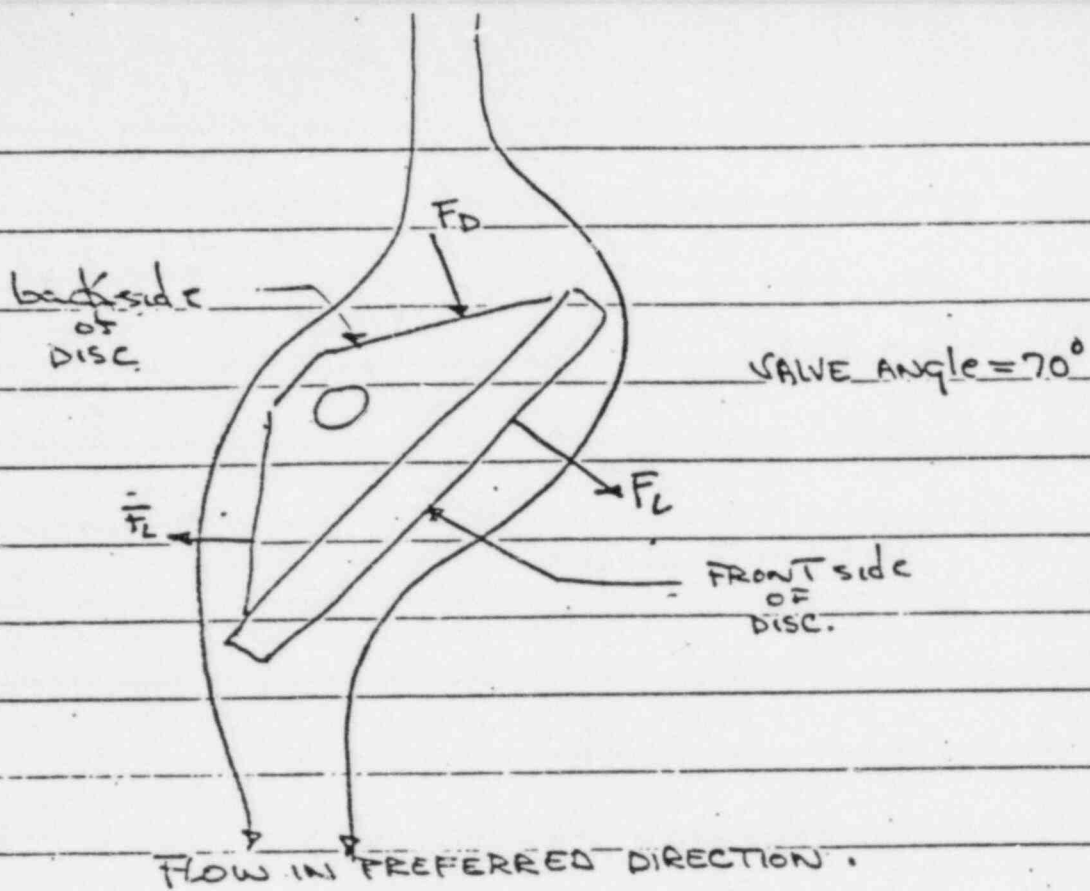 FD
backside
OF
DISC.
VALVE ANGLE = 70°
FL
F̄L
FRONT side
OF
DISC.
FLOW IN PREFERRED DIRECTION.